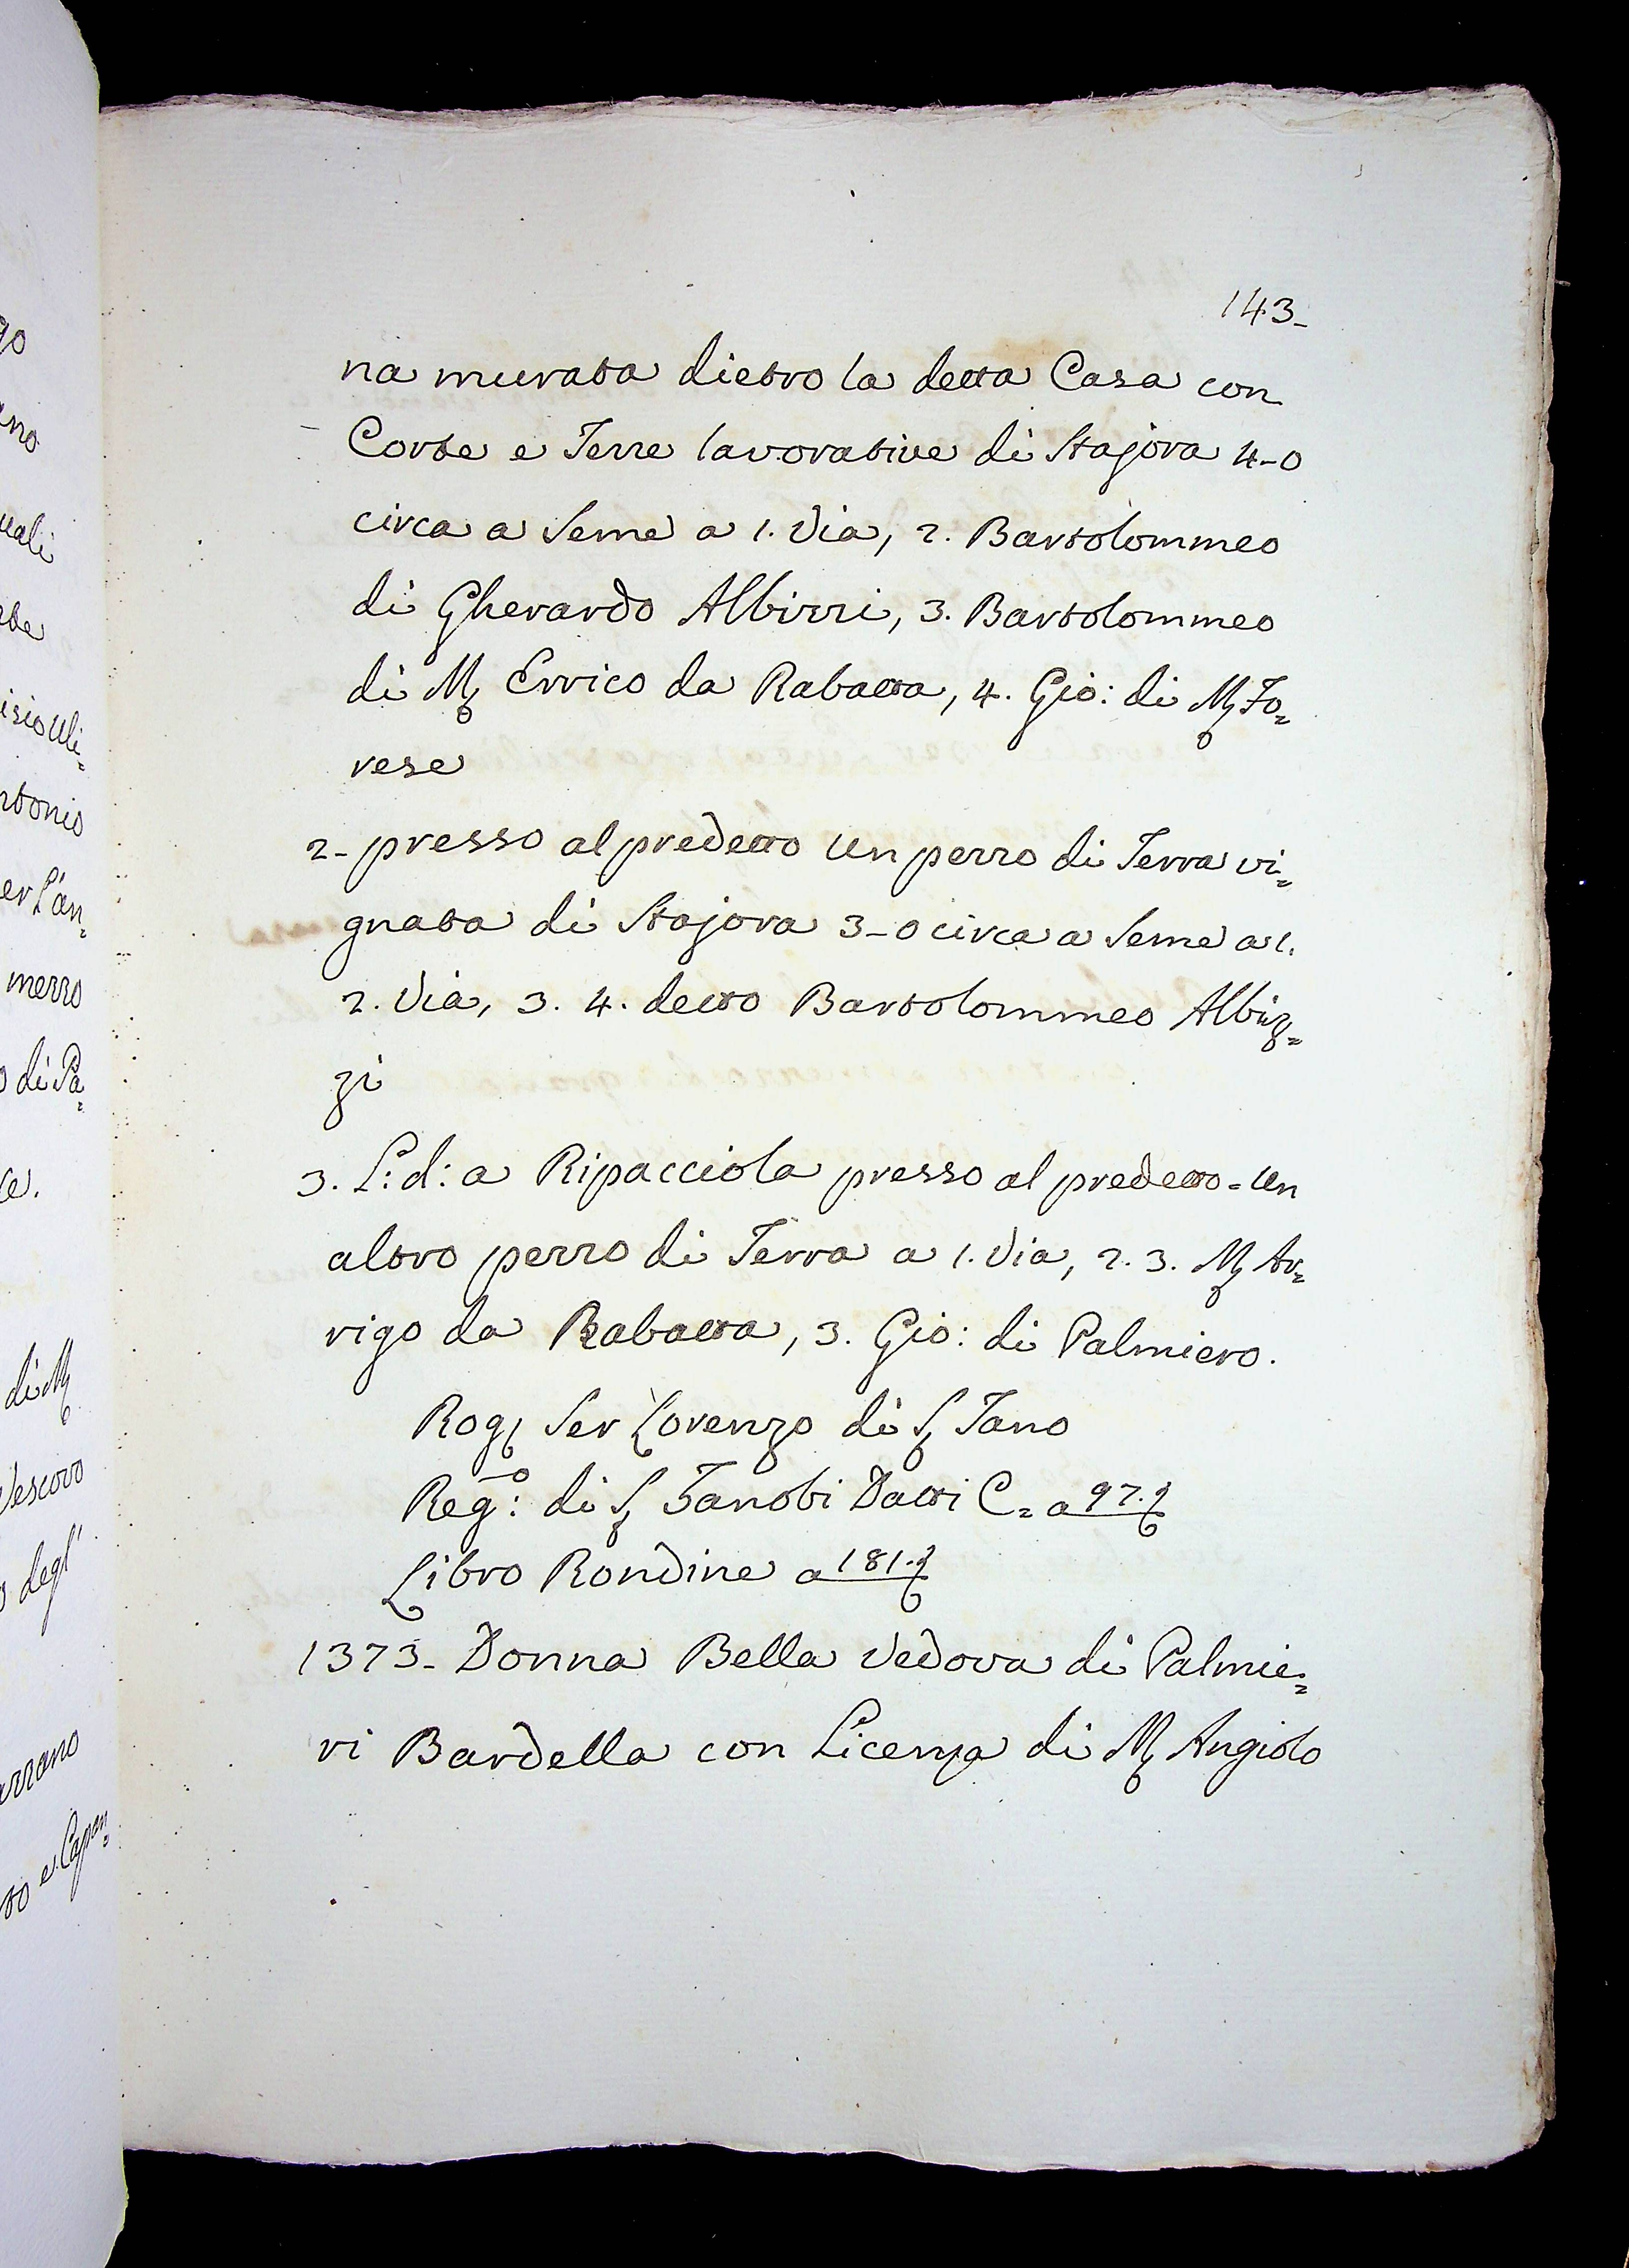 143-
na murata dietro la detta Casa con
Corte e Terre lavorative di Stajora 4-0
circa a Seme a 1. Via, 2. Bartolommeo
di Gherardo Albizzi, 3. Bartolommeo
di M Errico da Rabatta, 4. Gio: di M Fo=
rese
2- presso al predetto un pezzo di Terra vi=
gnata di Stajora 3-0 circa a Seme a 1.
2. Via, 3. 4. detto Bartolommeo Albiz=
zi
3. L: d: a Ripacciola presso al predetto = un
altro pezzo di Terra a 1. Via, 2. 3. M Ar=
rigo da Rabatta, 3. Gio: di Palmiero.
Rog Ser Lorenzo di S Tano
Reg:o di S Zanobi Datti C= a 97.
Libro Rondine a 181.
1373- Donna Bella Vedova di Palmie=
ri Bardella con Licenza di M Angiolo
go
uali
isio Uli=
ntonio
er l'an=
mezzo
o di Pa=
di M
Vescovo
o degl'
e Capan=